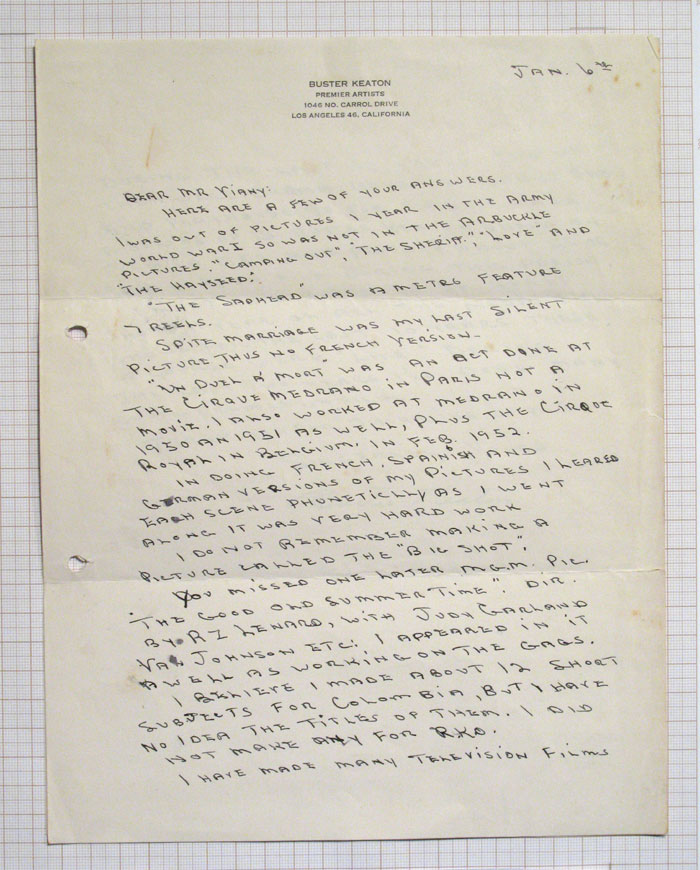 JAN. 6TH
BUSTER KEATON
PREMIER ARTISTS
1046 NO. CARROL DRIVE
LOS ANGELES 46, CALIFORNIA
DEAR MR VIANY:
HERE ARE A FEW OF YOUR ANSWERS.
I WAS OUT OF PICTURES 1 YEAR IN THE ARMY
WORLD WAR I SO WAS NOT IN THE ARBUCKLE
PICTURES. "CAMANG OUT", "THE SHERIFF", "LOVE" AND
"THE HAYSEED."
"THE SAPHEAD" WAS A METRO FEATURE
7 REELS.
SPITE MARRIAGE WAS MY LAST SILENT
PICTURE, THUS NO FRENCH VERSION.
"UN DUEL A' MORT" WAS AN ACT DONE AT
THE CIRQUE MEDRANO IN PARIS NOT A
MOVIE. I ALSO WORKED AT MEDRANO IN
1950 AN 1951 AS WELL, PLUS THE CIRQUE
ROYAL IN BELGIUM. IN FEB. 1952.
IN DOING FRENCH, SPAINISH AND
GERMAN VERSIONS OF MY PICTURES I LEARED
EACH SCENE PHUNETICLLY AS I WENT
ALONG IT WAS VERY HARD WORK
I DO NOT REMEMBER MAKING A
PICTURE CALLED THE "BIG SHOT".
YOU MISSED ONE LATER M.G.M. PIC.
"THE GOOD OLD SUMMERTIME". DIR.
BY R Z LENARD, WITH JUDY GARLAND
VAN JOHNSON ETC. I APPEARED IN IT
A WELL AS WORKING ON THE GAGS.
I BELIEVE I MADE ABOUT 12 SHORT
SUBJECTS FOR COLOMBIA BUT I HAVE
NO IDEA THE TITLES OF THEM. I DID
NOT MAKE ANY FOR RKO.
I HAVE MADE MANY TELEVISION FILMS